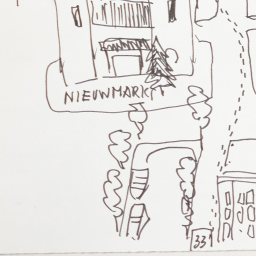 NIEUWMARKT
33